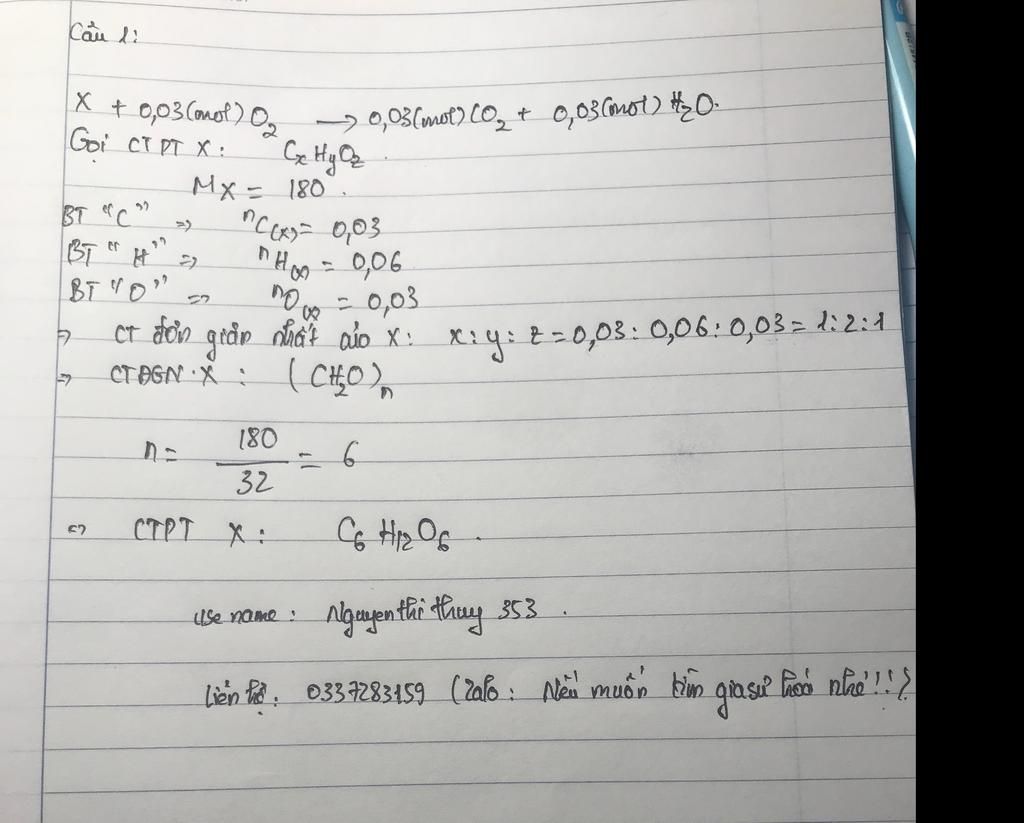 Câu 1:
X + 0,03(mol) O2 → 0,03(mol) CO2 + 0,03(mol) H2O.
Gọi CTPT X: CxHyOz.
MX = 180.
BT "C" => nC(X) = 0,03
BT "H" => nH(X) = 0,06
BT "O" => nO(X) = 0,03
=> CT đơn giản nhất của X: x:y:z = 0,03:0,06:0,03 = 1:2:1
=> CTĐGN X: (CH2O)n
n = 180/32 = 6
=> CTPT X: C6H12O6.
use name: Nguyenthithuy 353.
Liên hệ: 0337283159 (Zalo: Nếu muốn tìm gia sư hoá nhé!!!)